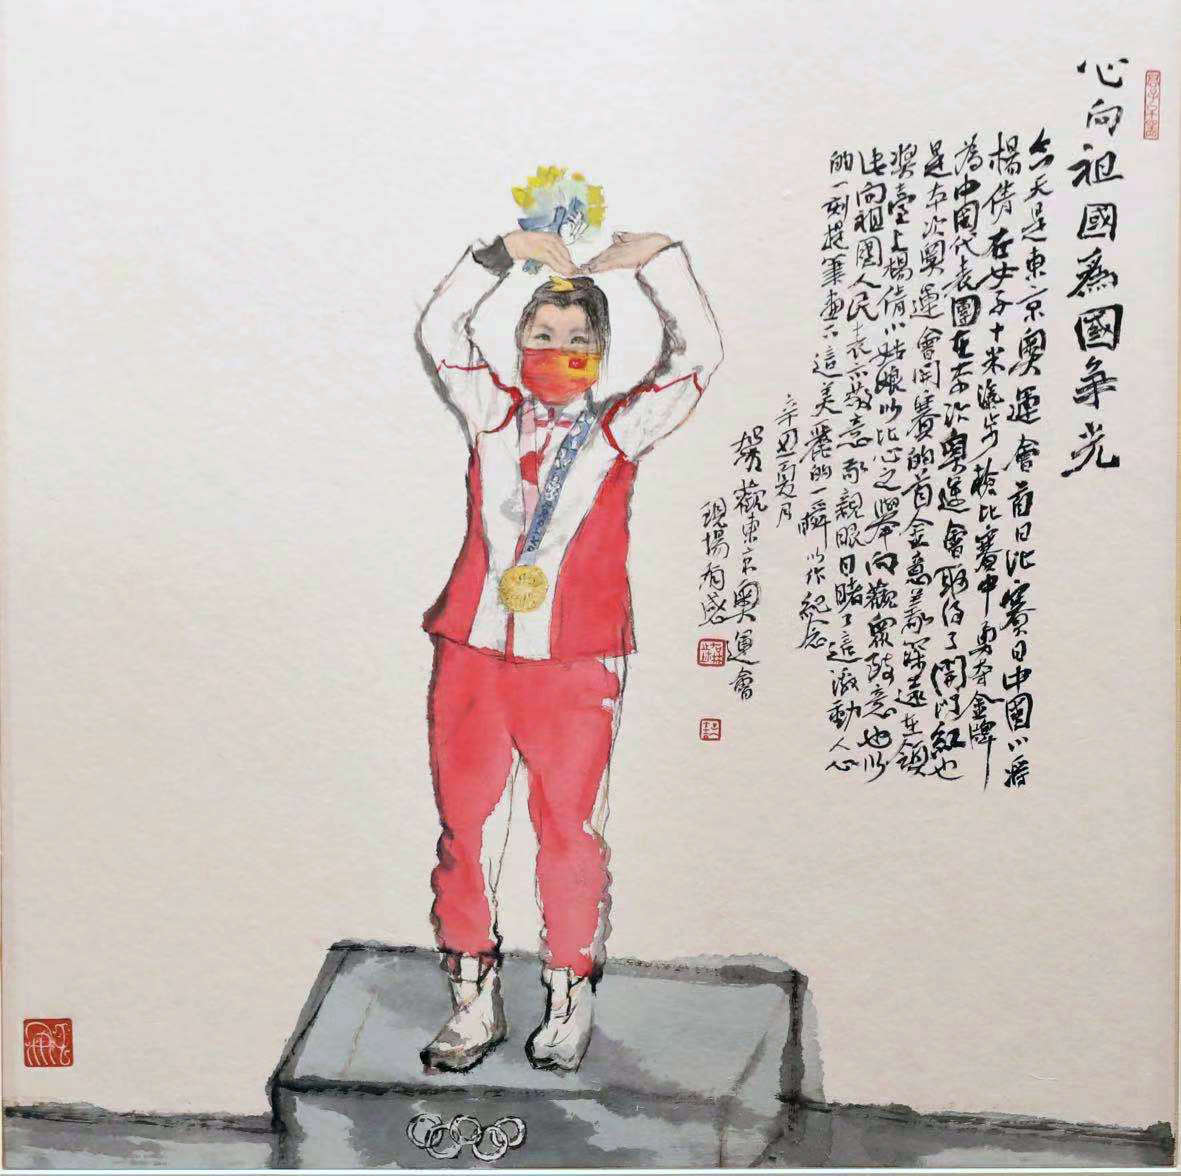 心向祖國爲國争光
今天是東京奥運會首日比賽日中國小將
楊倩在女子十米氣步槍比賽中勇夺金牌
為中国代表團在本次奥運會取得了開门紅也
是本次奥運會開賽的首金意義深遠在領
奖臺上楊倩小姑娘以比心之舉向觀眾致意也以
此向祖國人民表示敬意 我親眼目睹了這激動人心
的一刻提筆畫下這美麗的一瞬以作紀念
辛丑夏月
觀東京奥運會
現場有感